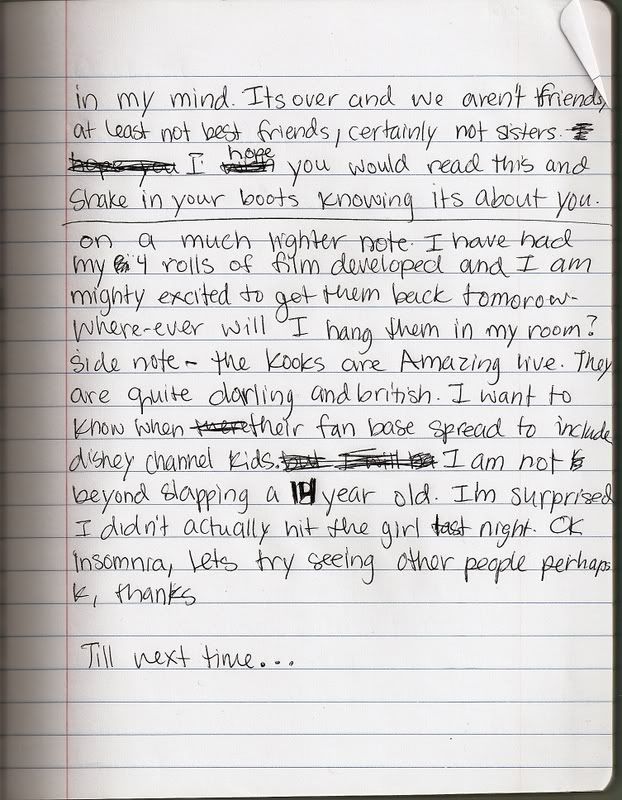 in my mind. Its over and we aren't friends,
at least not best friends, certainly not sisters. I
hope you I hope you would read this and
Shake in your boots knowing its about you.
on a much lighter note. I have had
my 4 rolls of film developed and I am
mighty excited to get them back tomorow-
Where-ever will I hang them in my room?
Side note - the Kooks are Amazing live. They
are quite darling and british. I want to
know when there their fan base spread to include
disney channel kids. but I will be I am not
beyond slapping a 14 year old. I'm surprised
I didn't actually hit the girl last night. OK
insomnia, Lets try seeing other people perhaps
k, thanks
Till next time...